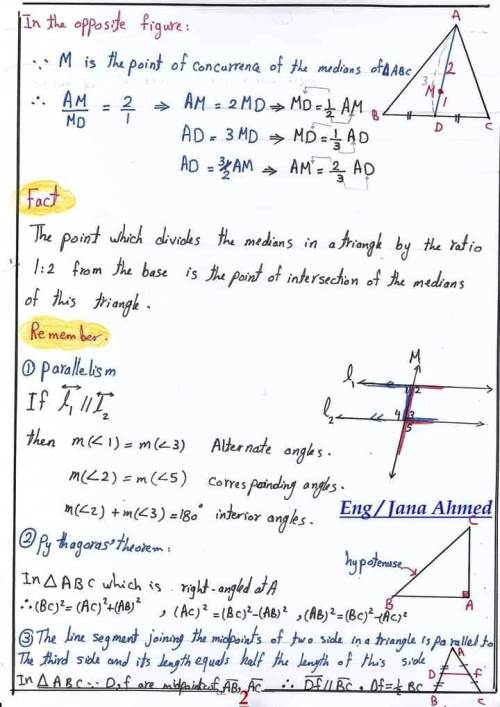 In the opposite figure:
∵ M is the point of concurrence of the medians of ΔABC
∴ AM/MD = 2/1 ⇒ AM = 2MD ⇒ MD = 1/2 AM
AD = 3MD ⇒ MD = 1/3 AD
AD = 3/2 AM ⇒ AM = 2/3 AD
A
3
2
M
1
B
D
C
Fact
The point which divides the medians in a triangle by the ratio
1:2 from the base is the point of intersection of the medians
of this triangle.
Remember.
① parallelism
If l₁ // l₂
then m(∠1) = m(∠3) Alternate angles.
m(∠2) = m(∠5) corresponding angles.
m(∠2) + m(∠3) = 180° interior angles.
M
l₁
1 2
l₂
4 3
5
Eng/Jana Ahmed
② Pythagoras' theorem:
In ΔABC which is right-angled at A
∴ (BC)² = (AC)² + (AB)² , (AC)² = (BC)² - (AB)² , (AB)² = (BC)² - (AC)²
C
hypotenuse
B
A
③ The line segment joining the midpoints of two side in a triangle is parallel to
The third side and its length equals half the length of this side
In ΔABC ∵ D, f are midpoints of AB, AC ∴ Df // BC , Df = 1/2 BC
A
D
f
B
C
2